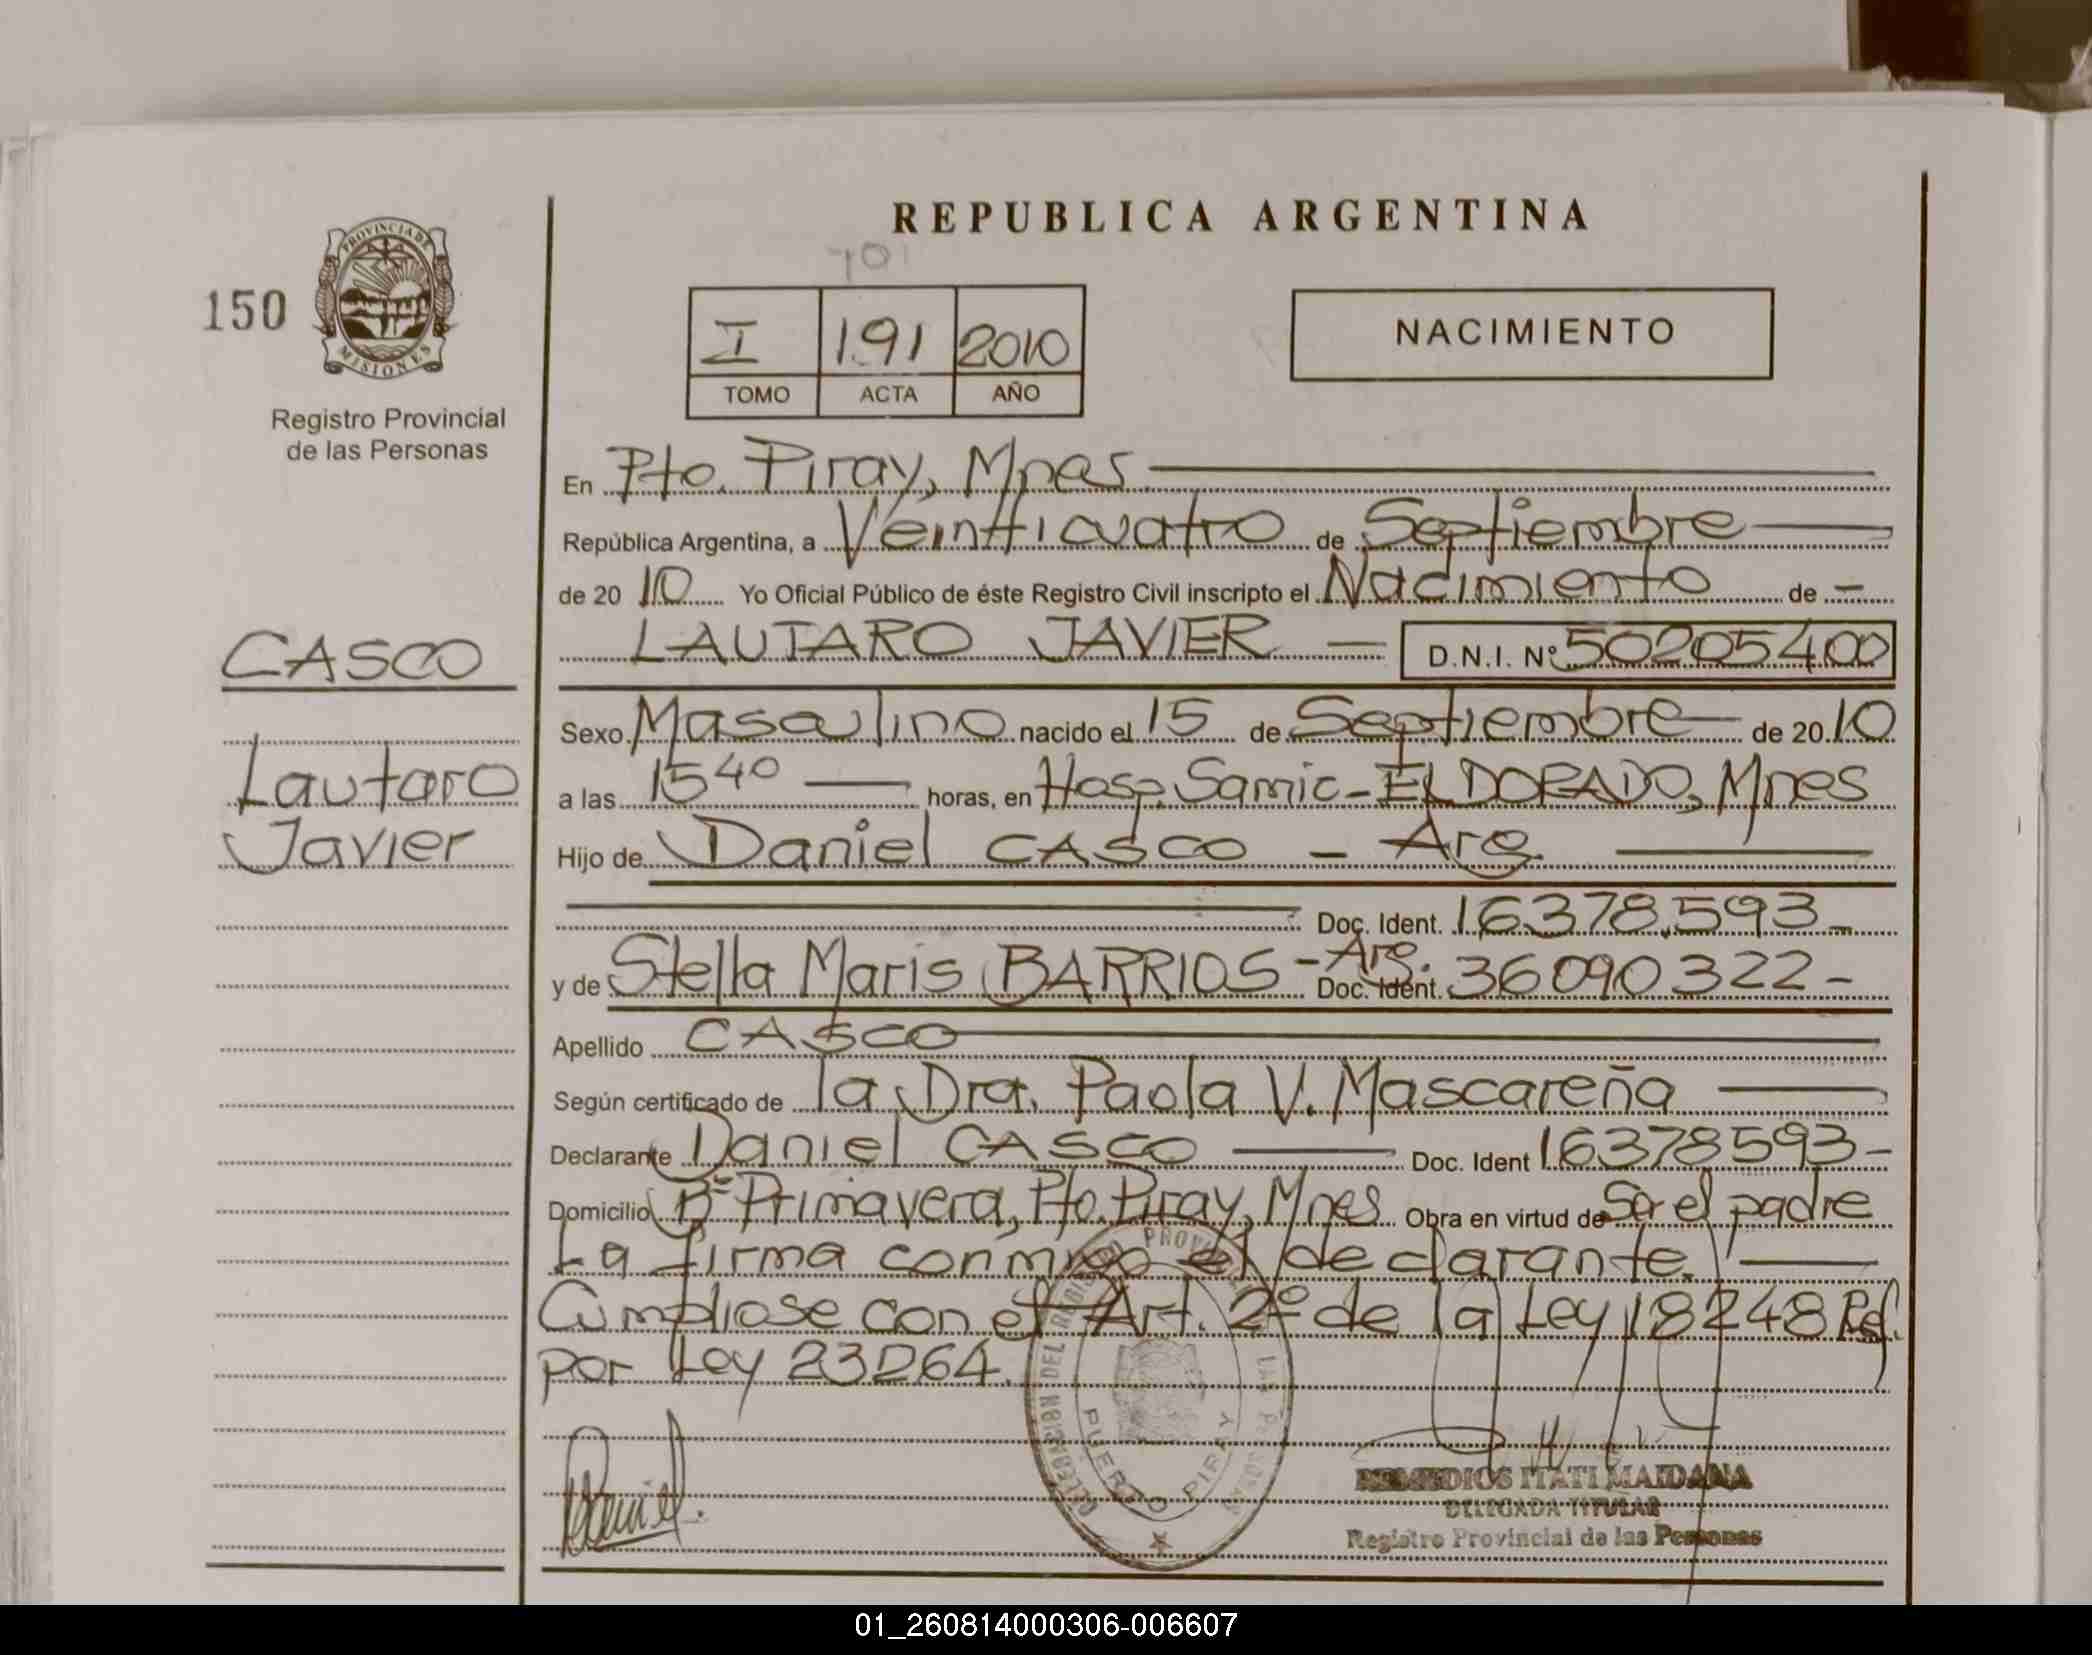 REPUBLICA ARGENTINA
150
PROVINCIA DE
MISIONES
Registro Provincial
de las Personas
I 191 2010
TOMO ACTA AÑO
NACIMIENTO
En Pto. Piray, Mnes
República Argentina, a Veintticuatro de Septiembre
de 20 10 Yo Oficial Público de éste Registro Civil inscripto el Nacimiento de -
LAUTARO JAVIER — D.N.I. Nº 50205400
CASCO
Lautaro
Javier
Sexo Masculino nacido el 15 de Septiembre de 20 10
a las 15 40 horas, en Hosp. Samic - ELDORADO, Mnes
Hijo de Daniel CASCO - Arg.
Doc. Ident. 16378.593 -
y de Stella Maris BARRIOS - Arg. Doc. Ident. 36090322 -
Apellido CASCO
Según certificado de la Dra. Paola V. Mascareña
Declarante Daniel CASCO Doc. Ident 16378593 -
Domicilio Bº Primavera, Pto. Piray, Mnes Obra en virtud de Ser el padre
La firma conmigo el declarante.
Cumpliose con el Art. 2º de la Ley 18248 Ref.
por Ley 23264.
DELEGACION DEL REGISTRO PROVINCIAL LAS PERSONAS
PUERTO PIRAY
Daniel.
REMEDIOS ITATI MAIDANA
DELEGADA TITULAR
Registro Provincial de las Personas
01_260814000306-006607